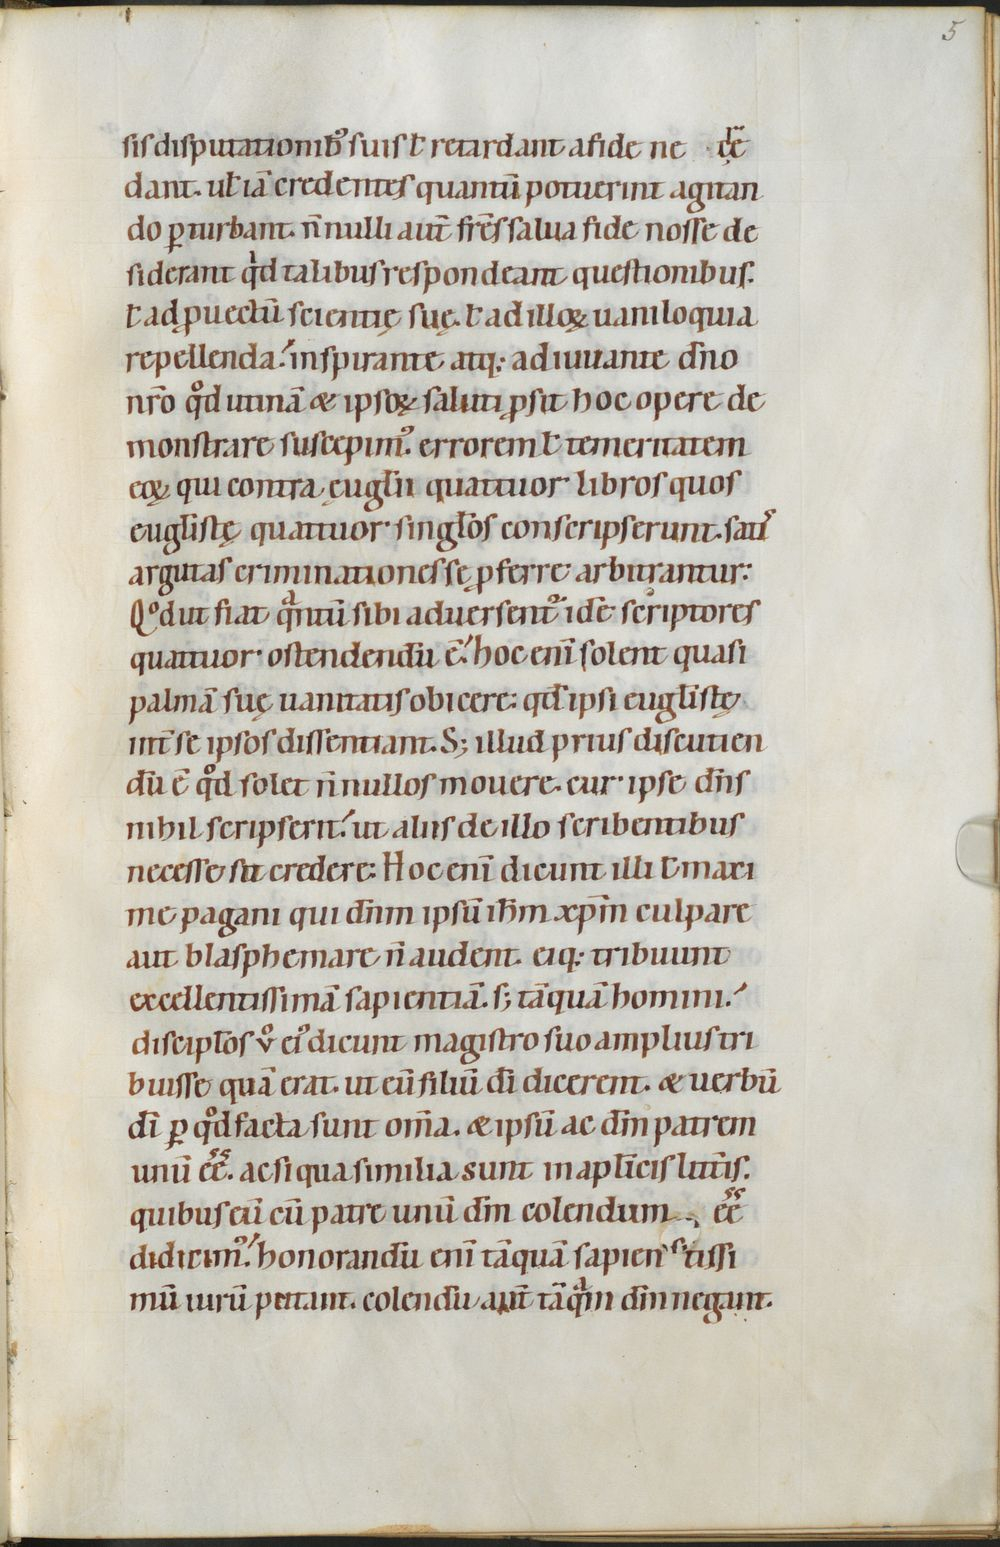 5
sis disputationib; suis ł retardant a fide ne cre
dant. uł iā credentes quantū potuerint agitan
do ꝑturbant. n̄nulli aut̄ fr̄es salua fide nosse de
siderant qͥd talibus respondeant questionibus.
ł ad ꝓuectū scientię suę. ł ad illoꝝ uaniloquia
repellenda. inspirante atq; adiuuante dn̄o
nr̄o qͦd utinā & ipsoꝝ saluti ꝓsit hoc opere de
monstrare suscepimꝰ. errorem ł temeritatem
eoꝝ qui contra ęugl̄ii quattuor libros quos
eugl̄istę quattuor singl̄os conscripserunt. satis
argutas criminationes se ꝓferre arbitrantur:
Qͦd ut fiat qͣntū sibi aduersent᷑ idē scriptores
quattuor ostendendū ē. hoc eni̅ solent quasi
palmā suę uanitatis obicere: qd̄ ipsi eugl̄istę
int̄ se ipsos dissentiant. S; illud prius discutien
dū ē qͦd solet n̄nullos mouere. cur ipse dn̄s
nihil scripserit. ut aliis de illo scribentibus
necesse sit credere: Hoc eni̅ dicunt illi ł maxi
me pagani qui dn̄m ipsū ih̄m xp̄m culpare
aut blasphemare n̄ audent. eiq; tribuunt
excellentissimā sapientiā. s; tāquā homini.
discipl̄os v̊ eiꝰ dicunt magistro suo amplius tri
buisse quā erat. ut eū filiū dī dicerent. & uerbū
dī ꝑ qͦd facta sunt om̄a. & ipsū ac dm̄ patrem
unū eēē. ac si qua similia sunt in apl̄icis litt̄is.
quibus eū cū patre unū dm̄ colendum eēē
didicimꝰ. honorandū eni̅ tāquā sapientissi
mū uirū putant. colendū aut̄ tāqͣm dm̄ negant.